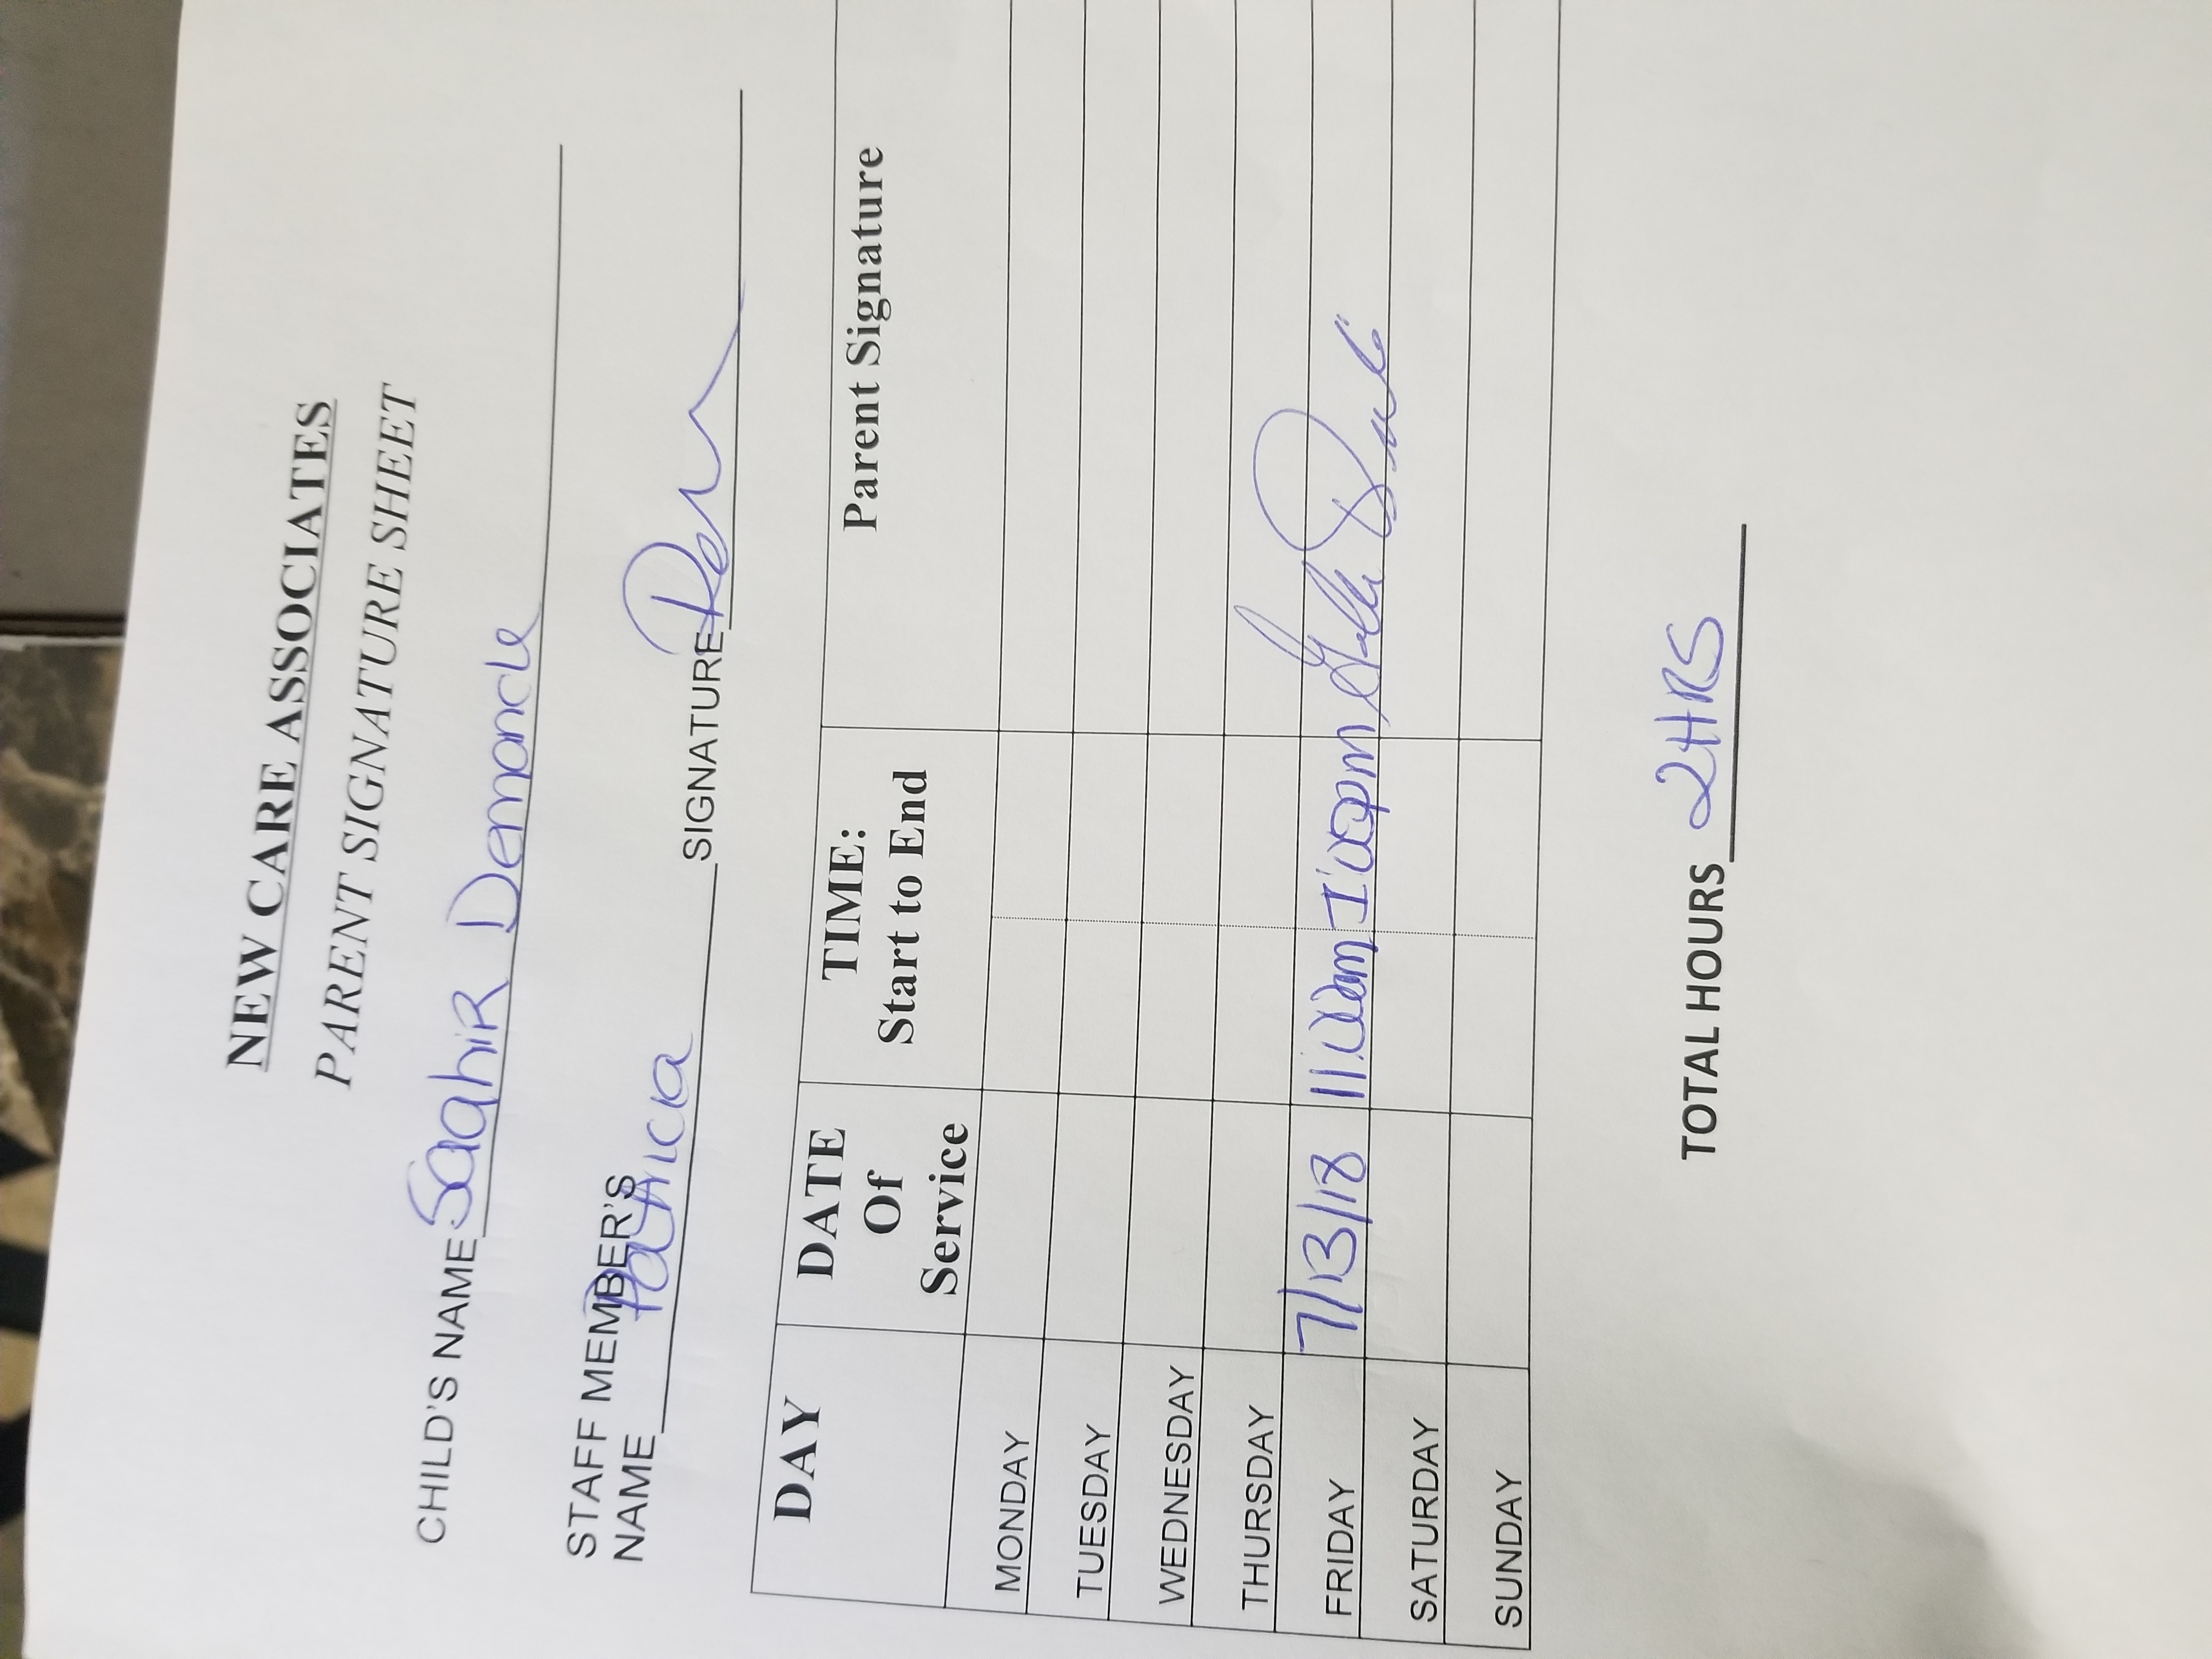 NEW CARE ASSOCIATES
PARENT SIGNATURE SHEET
CHILD'S NAME Saghir Demoncle
STAFF MEMBER'S
NAME Patricia SIGNATURE
DAY DATE Of Service TIME: Start to End Parent Signature
MONDAY
TUESDAY
WEDNESDAY
THURSDAY
FRIDAY 7/13/18 11:00am 1:00pm
SATURDAY
SUNDAY
TOTAL HOURS 2HRS